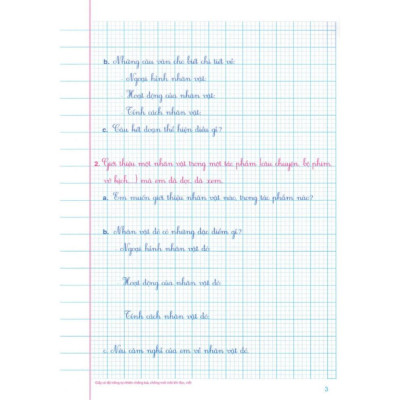 b. Những câu văn cho biết chi tiết về:
Ngoại hình nhân vật:
Hoạt động của nhân vật:
Tính cách nhân vật:
c. Câu kết đoạn thể hiện điều gì?
2. Giới thiệu một nhân vật trong một tác phẩm (câu chuyện, bộ phim,
vở kịch,...) mà em đã đọc, đã xem.
a. Em muốn giới thiệu nhân vật nào, trong tác phẩm nào?
b. Nhân vật đó có những đặc điểm gì?
Ngoại hình nhân vật đó:
Hoạt động của nhân vật đó:
Tính cách nhân vật đó:
c. Nêu cảm nghĩ của em về nhân vật đó.
3